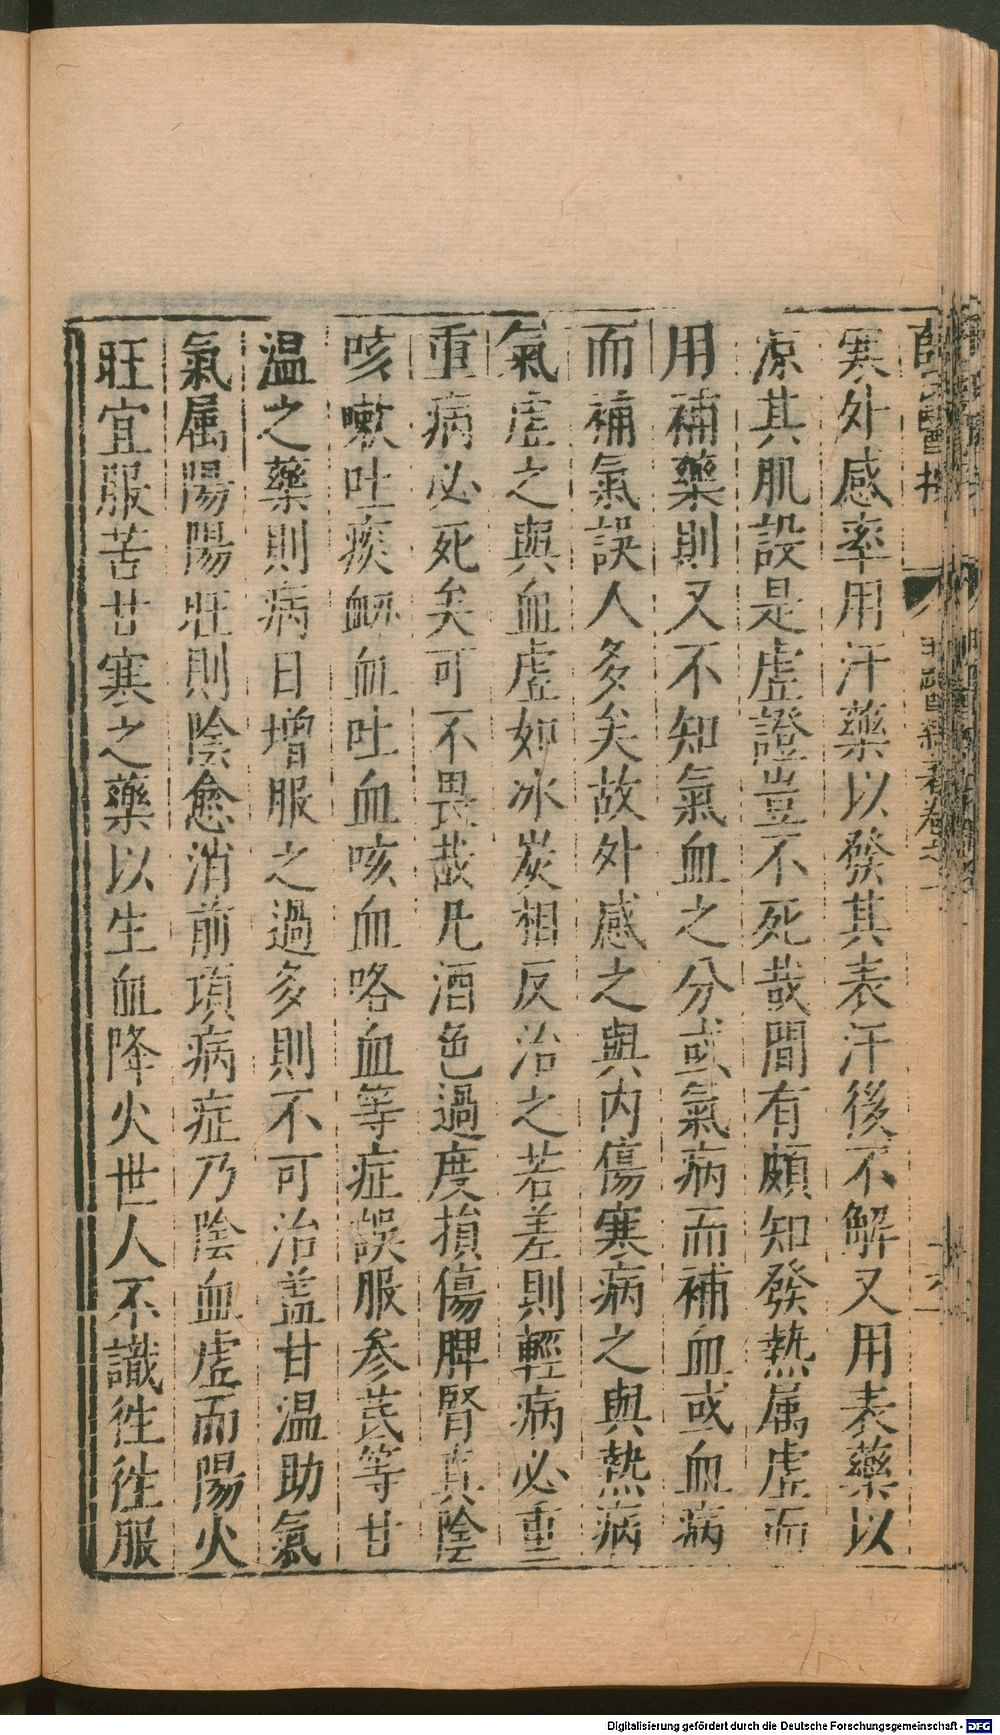 寒外感率用汗藥以發其表汗後不解又用表藥以
凉其肌設是虛證豈不死哉間有頗知發熱属虛而
用補藥則又不知氣血之分或氣病而補血或血病
而補氣誤人多矣故外感之與内傷寒病之與熱病
氣虛之與血虛如冰炭相反治之若差則輕病必重
重病必死矣可不畏哉凡酒色過度損傷脾腎真陰
咳嗽吐痰衂血吐血咳血咯血等症誤服参芪等甘
温之藥則病日增服之過多則不可治盖甘温助氣
氣属陽陽旺則陰愈消前項病症乃陰血虛而陽火
旺宜服苦甘寒之藥以生血降火世人不識徃徃服
Digitalisierung gefördert durch die Deutsche Forschungsgemeinschaft - DFG